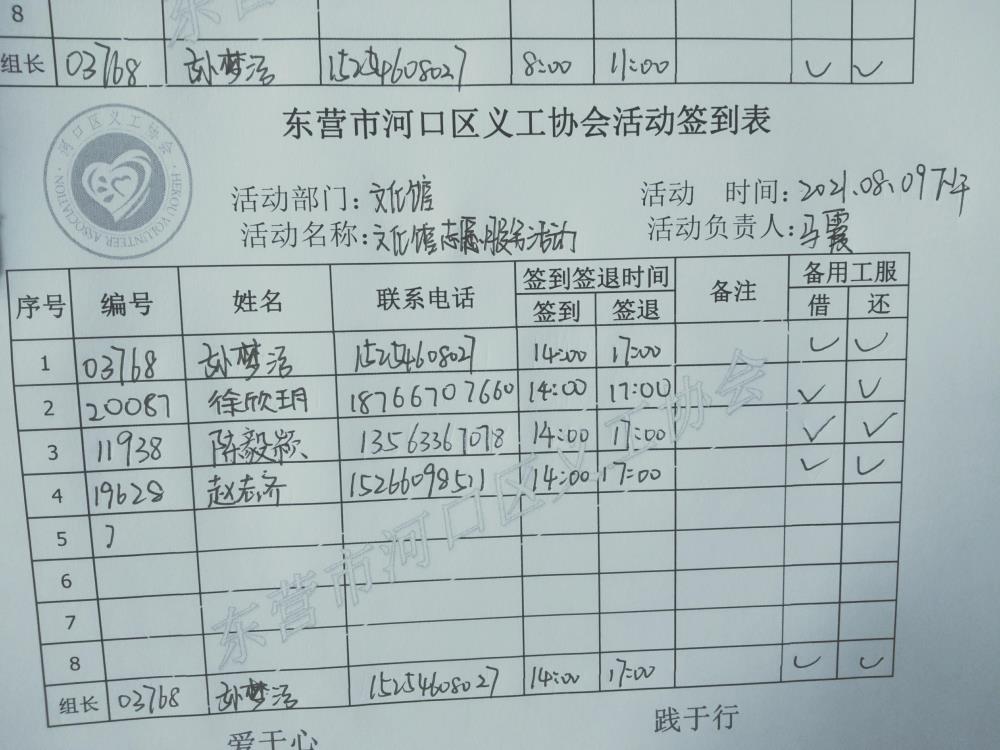 8
组长 03768 孙梦洁 15254608027 8:00 11:00 ✓ ✓
东营市河口区义工协会活动签到表
河口区义工协会
HEKOU VOLUNTEER ASSOCIATION
活动部门:文化馆 活动 时间:2021.08.09下午
活动名称:文化馆志愿服务活动 活动负责人:马霞
序号 编号 姓名 联系电话 签到签退时间 备注 备用工服
签到 签退 借 还
1 03768 孙梦洁 15254608027 14:00 17:00 ✓ ✓
2 20087 徐欣玥 18766707660 14:00 17:00 ✓ ✓
3 11938 陈毅颖 13563367078 14:00 17:00 ✓ ✓
4 19628 赵志齐 15266098511 14:00 17:00 ✓ ✓
5
6
7
8 ✓ ✓
组长 03768 孙梦洁 15254608027 14:00 17:00
爱于心 践于行
东营市河口区义工协会